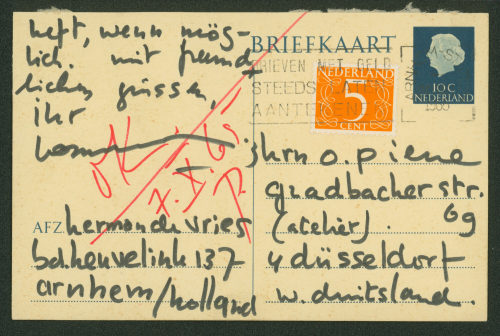 heft, wenn mög-
lich. mit freund-
lichen grüssen,
ihr
OK
7.X.60
BRIEFKAART
BRIEVEN MET GELD
STEEDS LATEN
AANTEKENEN
ARN
NEDERLAND
5
CENT
10 C
NEDERLAND
hrn o. piene
gladbacher str.
(atelier). 69
4 düsseldorf
w. duitsland.
AFZ herman de vries
bakhuvelink 137
arnhem/holland